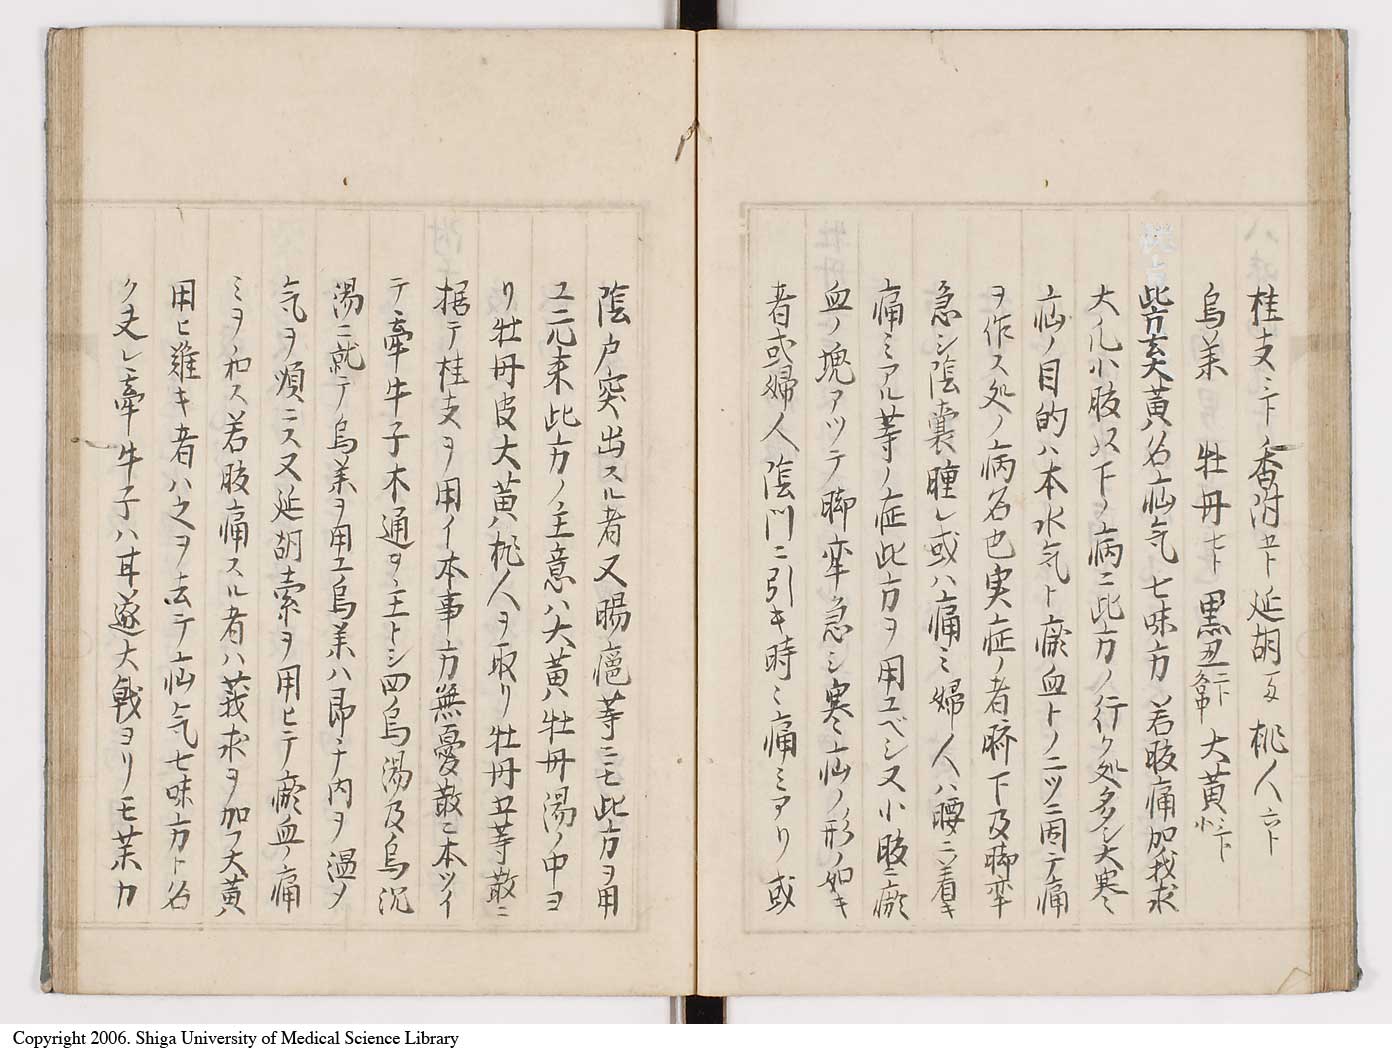 桂支ミト 香附五ト 延胡 桃人六ト
烏葉 牡丹七ト 黒丑二ト 大黄二ト
此方玄大黄ハ名疝気七味方若腹痛加莪朮
大凡小腹以下ノ病ニ此方ノ行ク処多シ大寒
疝ノ目的ハ本水気ト瘀血トノ二ツニ因テ痛
ヲ作ス処ノ病名也実症ノ者臍下及脚牽
急シ陰嚢腫レ或ハ痛ミ婦人ハ腰ニ着キ
痛ミアル等ノ症此方ヲ用ユベシ又小腹ニ瘀
血ノ塊アツテ脚牽急シ寒疝ノ形ノ如キ
者或婦人陰門ニ引キ時ミ痛ミアリ或
陰戸突出スル者又腸㿗等ニモ此方ヲ用
ユ元来此方ノ主意ハ大黄牡丹湯ノ中ヨ
リ牡丹皮大黄ハ桃人ヲ取リ牡丹五等散ニ
据テ桂支ヲ用イ本事方無憂散ニ本ツイ
テ牽牛子木通ヲ主トシ四烏湯及烏沉
湯ニ就テ烏葉ヲ用ユ烏葉ハ即チ内ヲ温メ
気ヲ順ニス又延胡索ヲ用ヒテ瘀血ノ痛
ミヲ和ス若腹痛スル者ハ莪朮ヲ加フ大黄
用ヒ難キ者ハ之ヲ去テ疝気七味方ト名
ク又レ牽牛子ハ甘遂大戟ヨリモ葉力
Copyright 2006. Shiga University of Medical Science Library